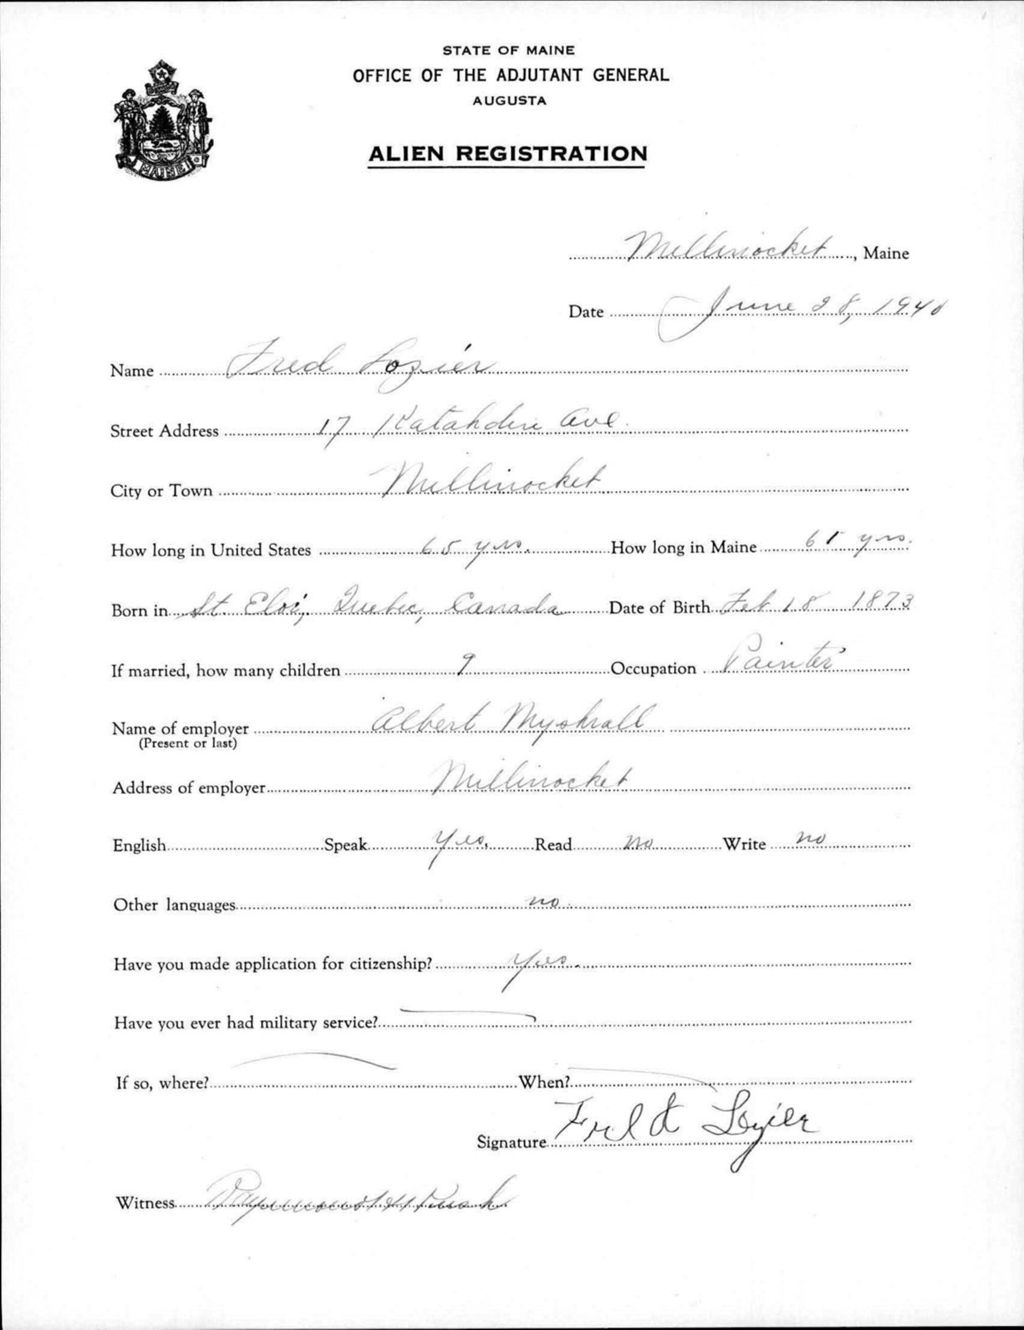 STATE OF MAINE
OFFICE OF THE ADJUTANT GENERAL
AUGUSTA
ALIEN REGISTRATION
MAINE
Millinocket, Maine
Date June 28, 1940
Name Fred Lozier
Street Address 17 Katahdin Ave.
City or Town Millinocket
How long in United States 65 yrs. How long in Maine 61 yrs.
Born in St. Eloi, Quebec, Canada Date of Birth Feb 18 1873
If married, how many children 9 Occupation Painter
Name of employer Albert Myshrall
(Present or last)
Address of employer Millinocket
English Speak Yes. Read no Write no
Other languages no.
Have you made application for citizenship? Yes.
Have you ever had military service?
If so, where? When?
Signature Lozier
Witness Raymond